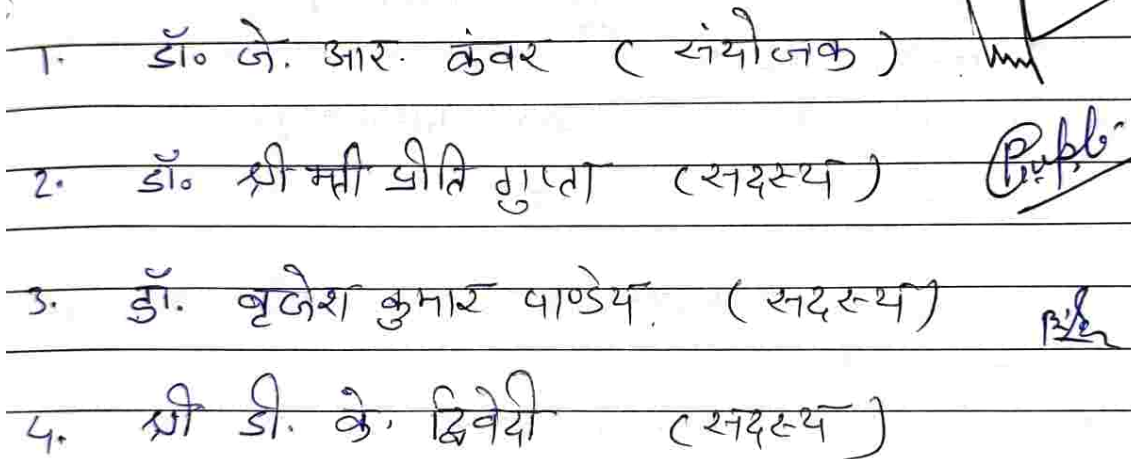 1. डॉ० जे. आर. कंवर ( संयोजक )
2. डॉ० श्रीमती प्रीति गुप्ता (सदस्य )
3. डॉ. बृजेश कुमार पाण्डेय. ( सदस्य )
4. श्री डी. के. द्विवेदी (सदस्य )